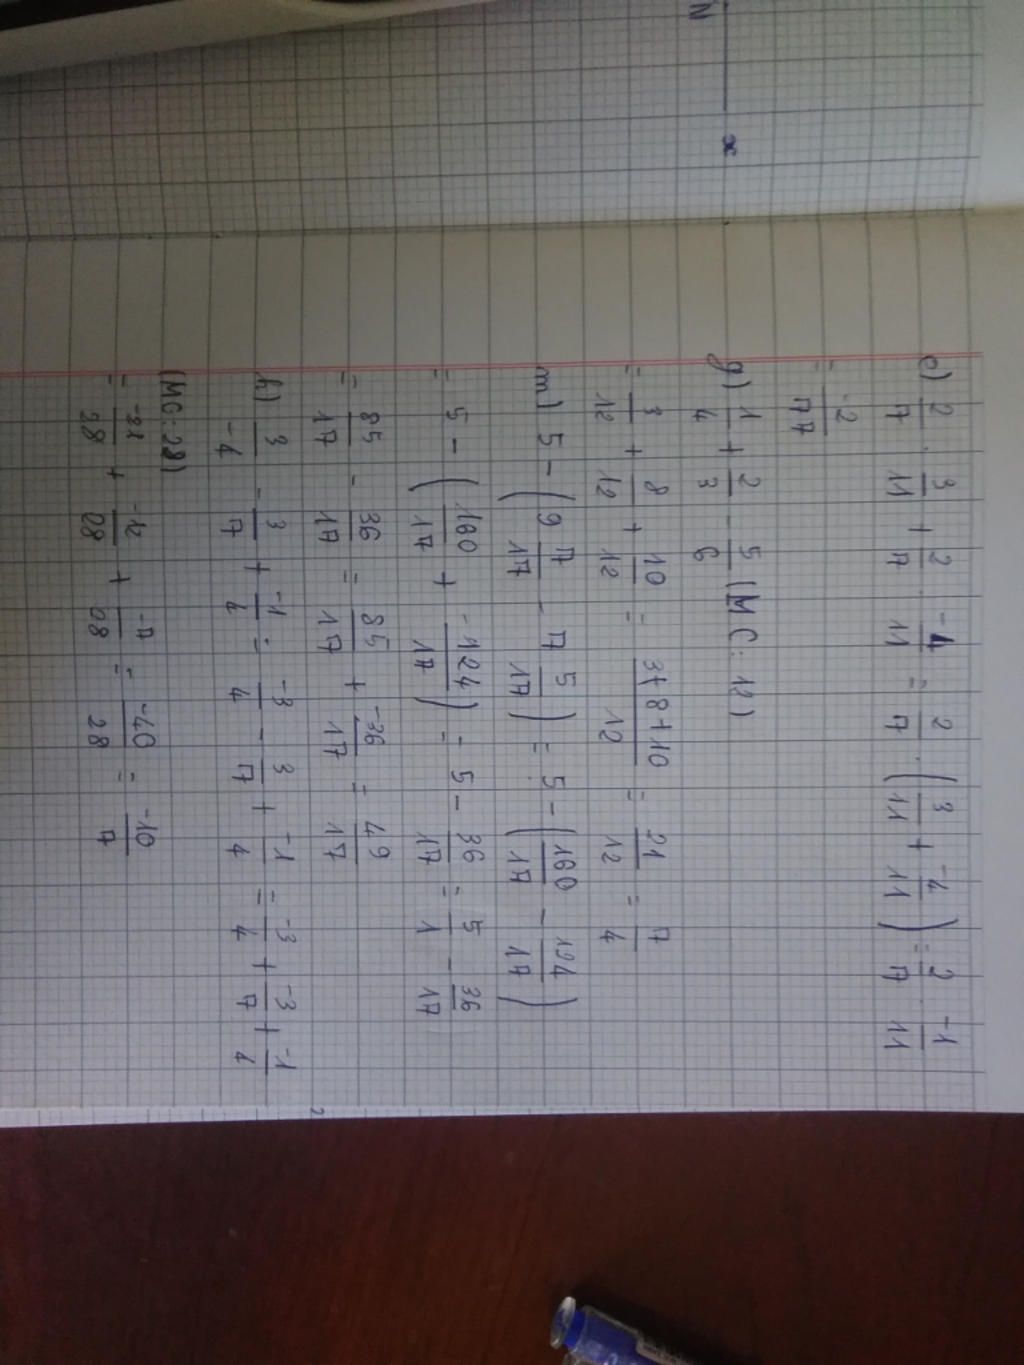 N x
e) 2/7 . 3/11 + 2/7 . -4/11 = 2/7 . (3/11 + -4/11) = 2/7 . -1/11
= -2/77
g) 1/4 + 2/3 - 5/6 (MC: 12)
= 3/12 + 8/12 + 10/12 = 3+8+10/12 = 21/12 = 7/4
m) 5 - (9 7/17 - 7 5/17) = 5 - (160/17 - 124/17)
= 5 - (160/17 + -124/17) = 5 - 36/17 = 5/1 - 36/17
= 85/17 - 36/17 = 85/17 + -36/17 = 49/17
h) 3/-4 - 3/7 + -1/4 = -3/4 - 3/7 + -1/4 = -3/4 + -3/7 + -1/4
(MC: 28)
= -21/28 + -12/28 + -7/28 = -40/28 = -10/7